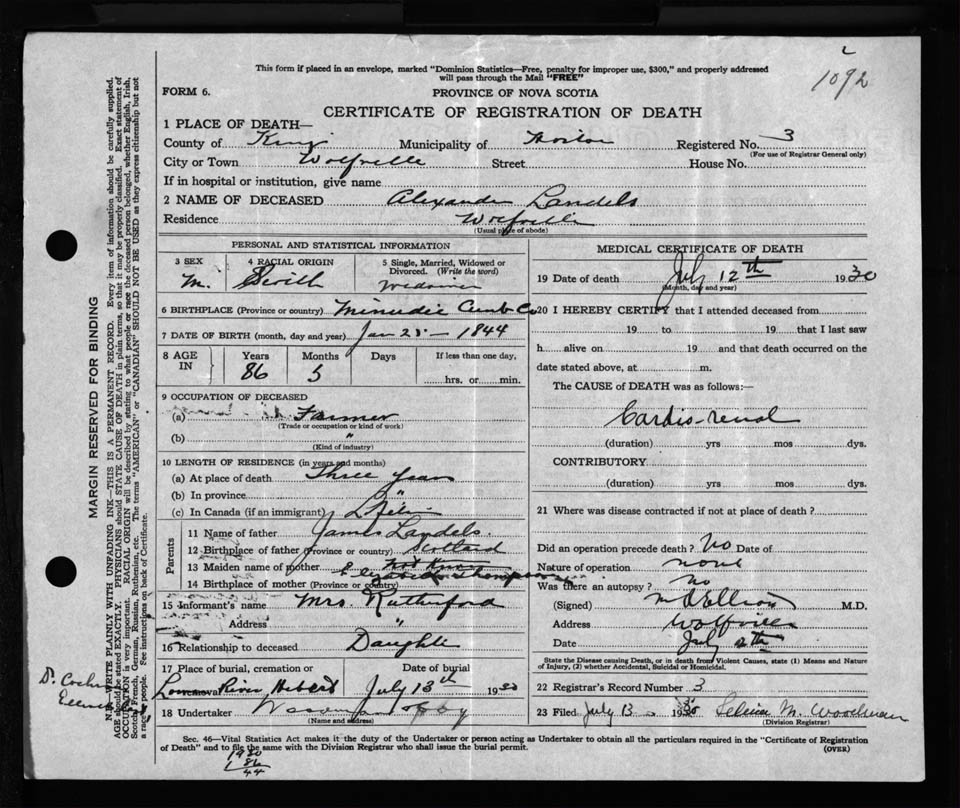 1092
This form if placed in an envelope, marked "Dominion Statistics—Free, penalty for improper use, $300," and properly addressed
will pass through the Mail "FREE"
FORM 6.
PROVINCE OF NOVA SCOTIA
CERTIFICATE OF REGISTRATION OF DEATH
1 PLACE OF DEATH—
County of Kings Municipality of Horton Registered No. 3
(For use of Registrar General only)
City or Town Wolfville Street House No.
If in hospital or institution, give name
2 NAME OF DECEASED Alexander Landels
Residence Wolfville
(Usual place of abode)
PERSONAL AND STATISTICAL INFORMATION
3 SEX 4 RACIAL ORIGIN 5 Single, Married, Widowed or
Divorced. (Write the word)
M.
6 BIRTHPLACE (Province or country) Minudie Cumb Co
7 DATE OF BIRTH (month, day and year) Jan 25 - 1844
8 AGE IN Years Months Days If less than one day,
86 5 hrs. or min.
9 OCCUPATION OF DECEASED
(a) Farmer
(Trade or occupation or kind of work)
(b) "
(Kind of industry)
10 LENGTH OF RESIDENCE (in years and months)
(a) At place of death Three years
(b) In province "
(c) In Canada (if an immigrant) Life
Parents
11 Name of father James Landels
12 Birthplace of father (Province or country) Scotland
13 Maiden name of mother Elizabeth Thompson
14 Birthplace of mother (Province or country)
15 Informant's name Mrs. Rutherford
Address "
16 Relationship to deceased Daughter
17 Place of burial, cremation or Date of burial
River Hebert July 13th 1930
18 Undertaker
(Name and address)
MEDICAL CERTIFICATE OF DEATH
19 Date of death July 12th 1930
(Month, day and year)
20 I HEREBY CERTIFY that I attended deceased from
19 to 19 that I last saw
h alive on 19 and that death occurred on the
date stated above, at m.
The CAUSE of DEATH was as follows:—
Cardio-renal
(duration) yrs mos dys.
CONTRIBUTORY
(duration) yrs mos dys.
21 Where was disease contracted if not at place of death?
Did an operation precede death? No Date of
Nature of operation none
Was there an autopsy? no
(Signed) M.D.
Address Wolfville
Date July
State the Disease causing Death, or in death from Violent Causes, state (1) Means and Nature
of Injury, (2) whether Accidental, Suicidal or Homicidal.
22 Registrar's Record Number 3
23 Filed July 13 1930 M. Woodman
(Division Registrar)
Sec. 46—Vital Statistics Act makes it the duty of the Undertaker or person acting as Undertaker to obtain all the particulars required in the "Certificate of Registration
of Death" and to file the same with the Division Registrar who shall issue the burial permit.
(OVER)
1930
86
44
MARGIN RESERVED FOR BINDING
N.B. WRITE PLAINLY WITH UNFADING INK—THIS IS A PERMANENT RECORD. Every item of information should be carefully supplied.
AGE should be stated EXACTLY. PHYSICIANS should STATE CAUSE OF DEATH in plain terms, so that it may be properly classified. Exact statement of
OCCUPATION is very important. RACIAL ORIGIN will be described by stating to what people or race the deceased person belonged, whether English, Irish,
Scotch, French, German, Russian, Ruthenian, etc. The terms "AMERICAN" or "CANADIAN" SHOULD NOT BE USED as they express citizenship but not
a race or people. See instructions on back of Certificate.